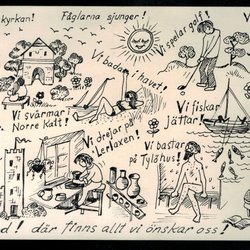 kyrkan!
Fåglarna sjunger!
Vi spelar golf!
Vi badar i havet!
Vi svärmar i
Norre Katt!
Vi drejar på
Lerlaxen!
Vi fiskar
jättar!
Vi bastar
på Tylöhus!
d! där finns allt vi önskar oss!